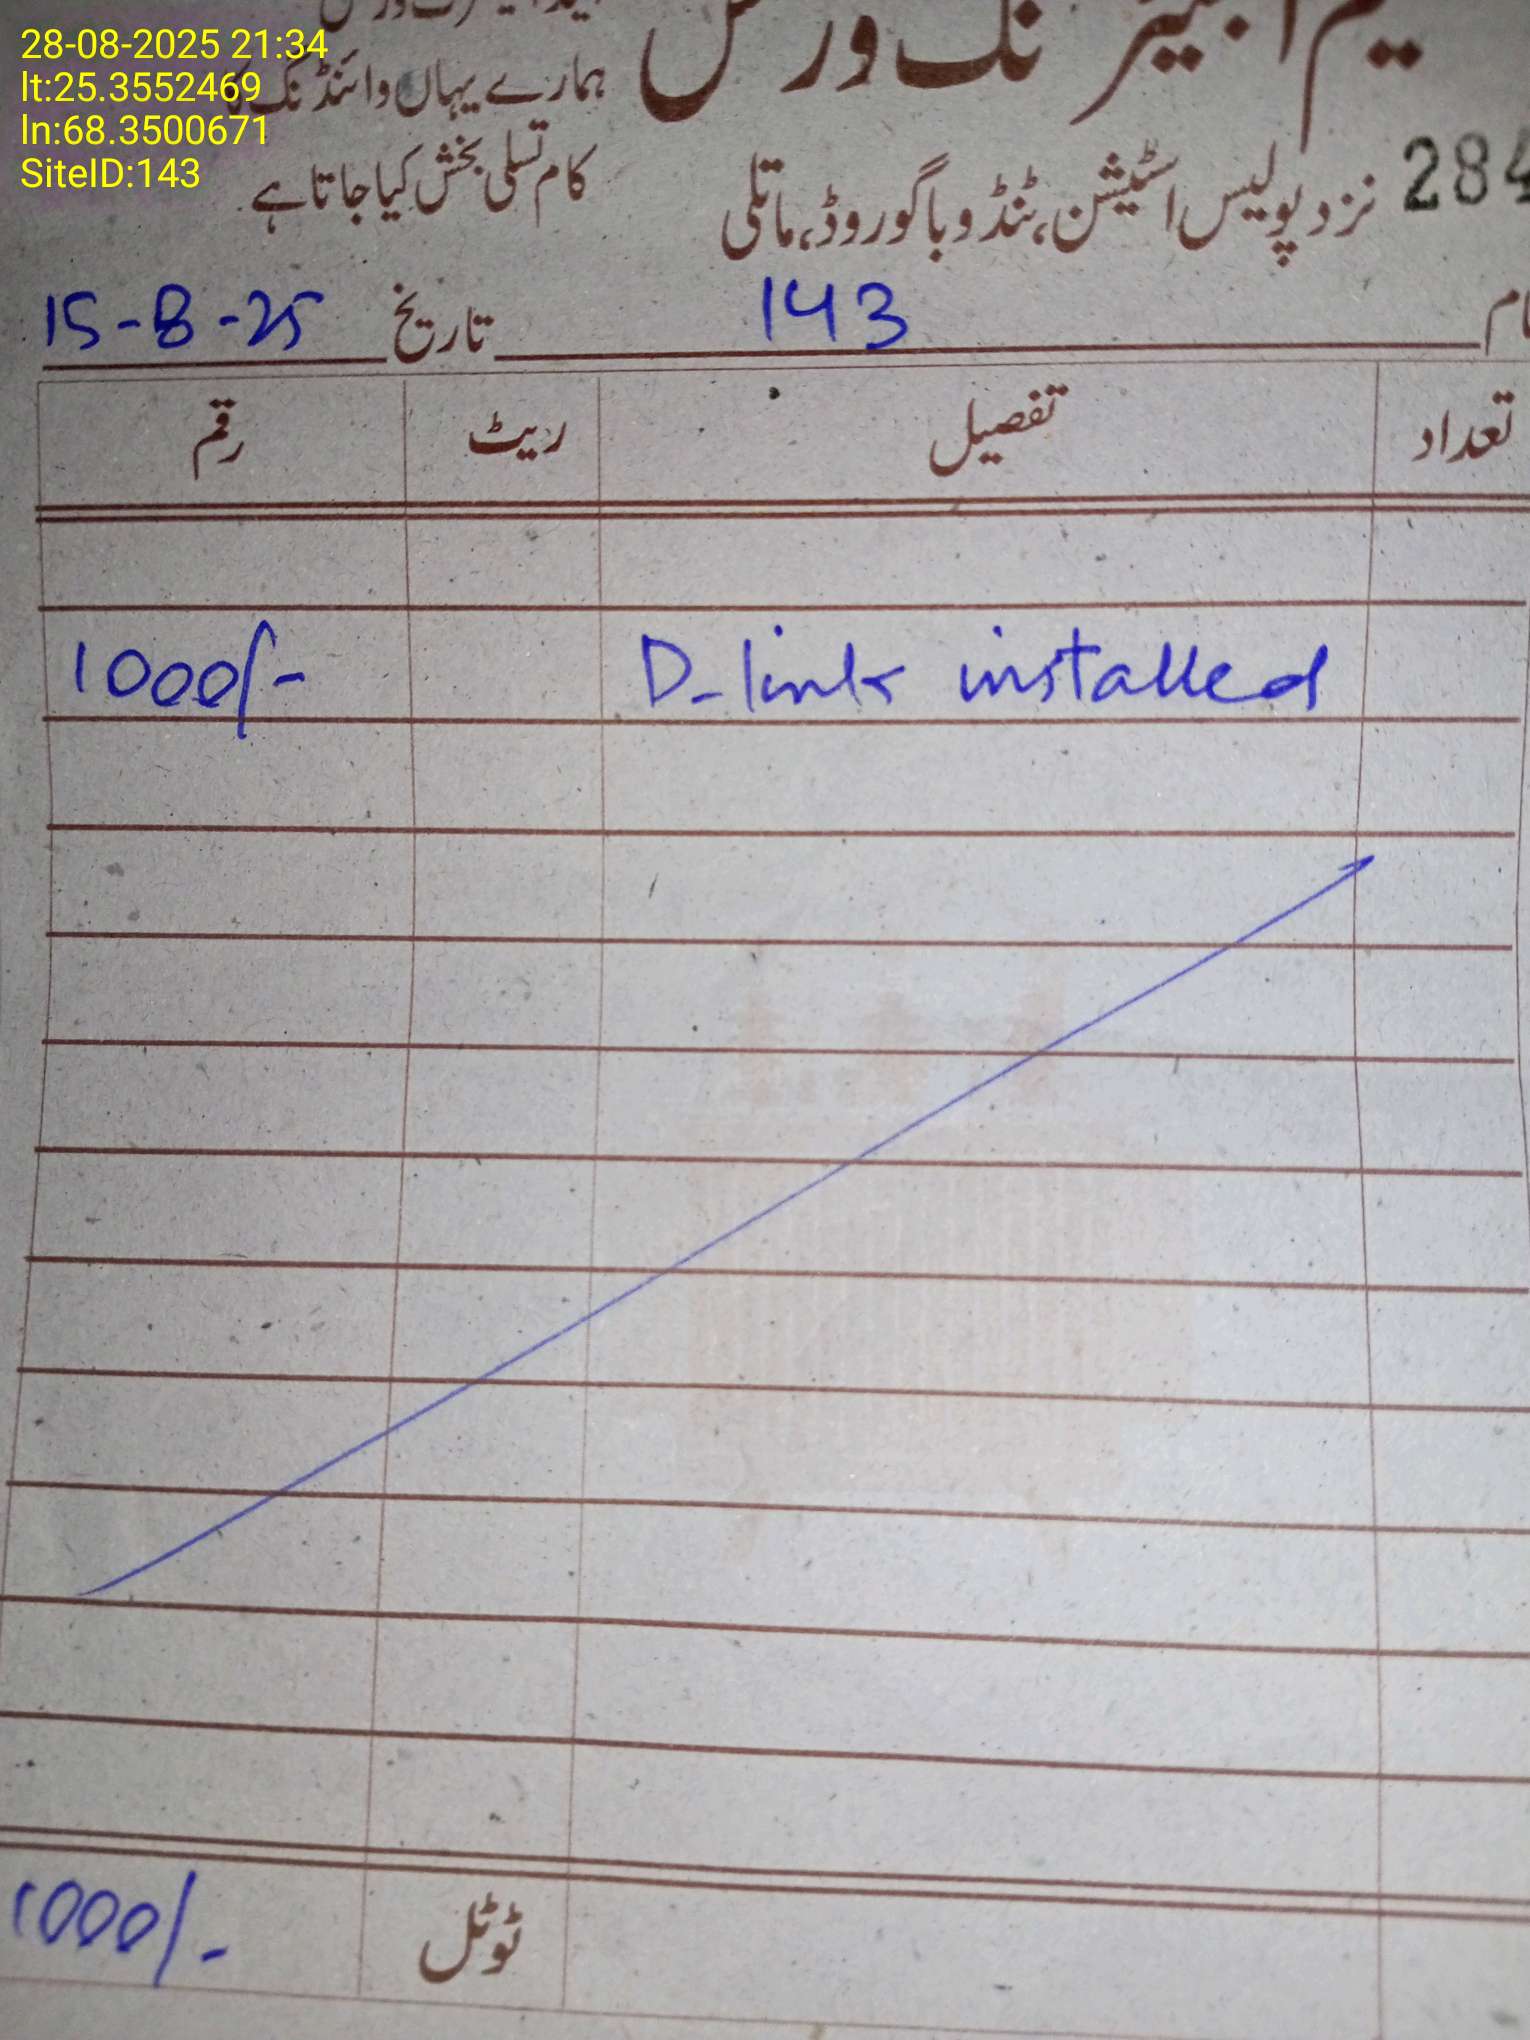 28-08-2025 21:34
lt:25.3552469
ln:68.3500671
SiteID:143
نگ ورکس
ہمارے یہاں وائنڈنگ کا
کام تسلی بخش کیا جاتا ہے
284
نزد پولیس اسٹیشن، ٹنڈو باگو روڈ، ماتلی
143
تاریخ 15-8-25
تعداد تفصیل ریٹ رقم
D-link installed 1000/-
ٹوٹل 1000/-